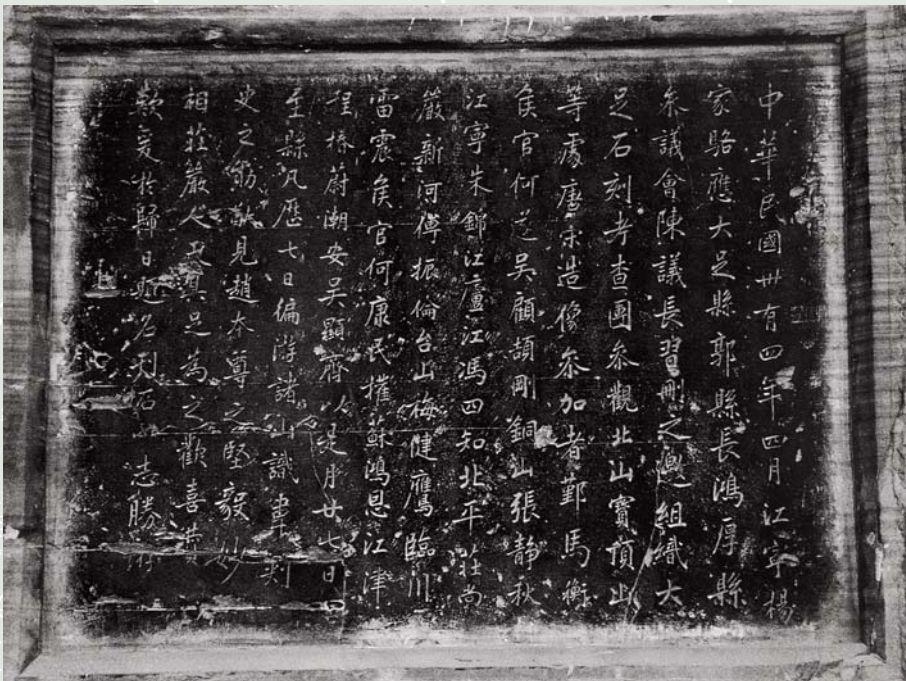 中華民國卅有四年四月江寧楊
家駱應大足縣郭縣長鴻厚縣
參議會陳議長習刪之邀組織大
足石刻考查團參觀北山寶頂山
等處唐宋造像參加者鄞馬衡
侯官何遂吳顧頡剛銅山張靜秋
江寧朱錦江廬江馮四知北平莊尚
嚴新河傅振倫台山梅健鷹臨川
雷震侯官何康民權蘇鴻恩江津
程椿蔚潮安吳顯齊以是月廿七日
至縣凡歷七日徧游諸山識韋刺
史之勳猷見趙本尊之堅毅妙
相莊嚴人天具足為之歡喜贊
歎爰於歸日題名刊石以志勝游